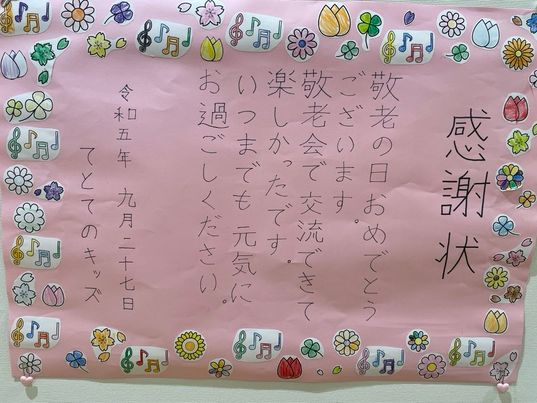 感謝状
敬老の日おめでとう
ございます。
敬老会で交流できて
楽しかったです。
いつまでも元気に
お過ごしください。
令和五年 九月二十七日
てとてのキッズ